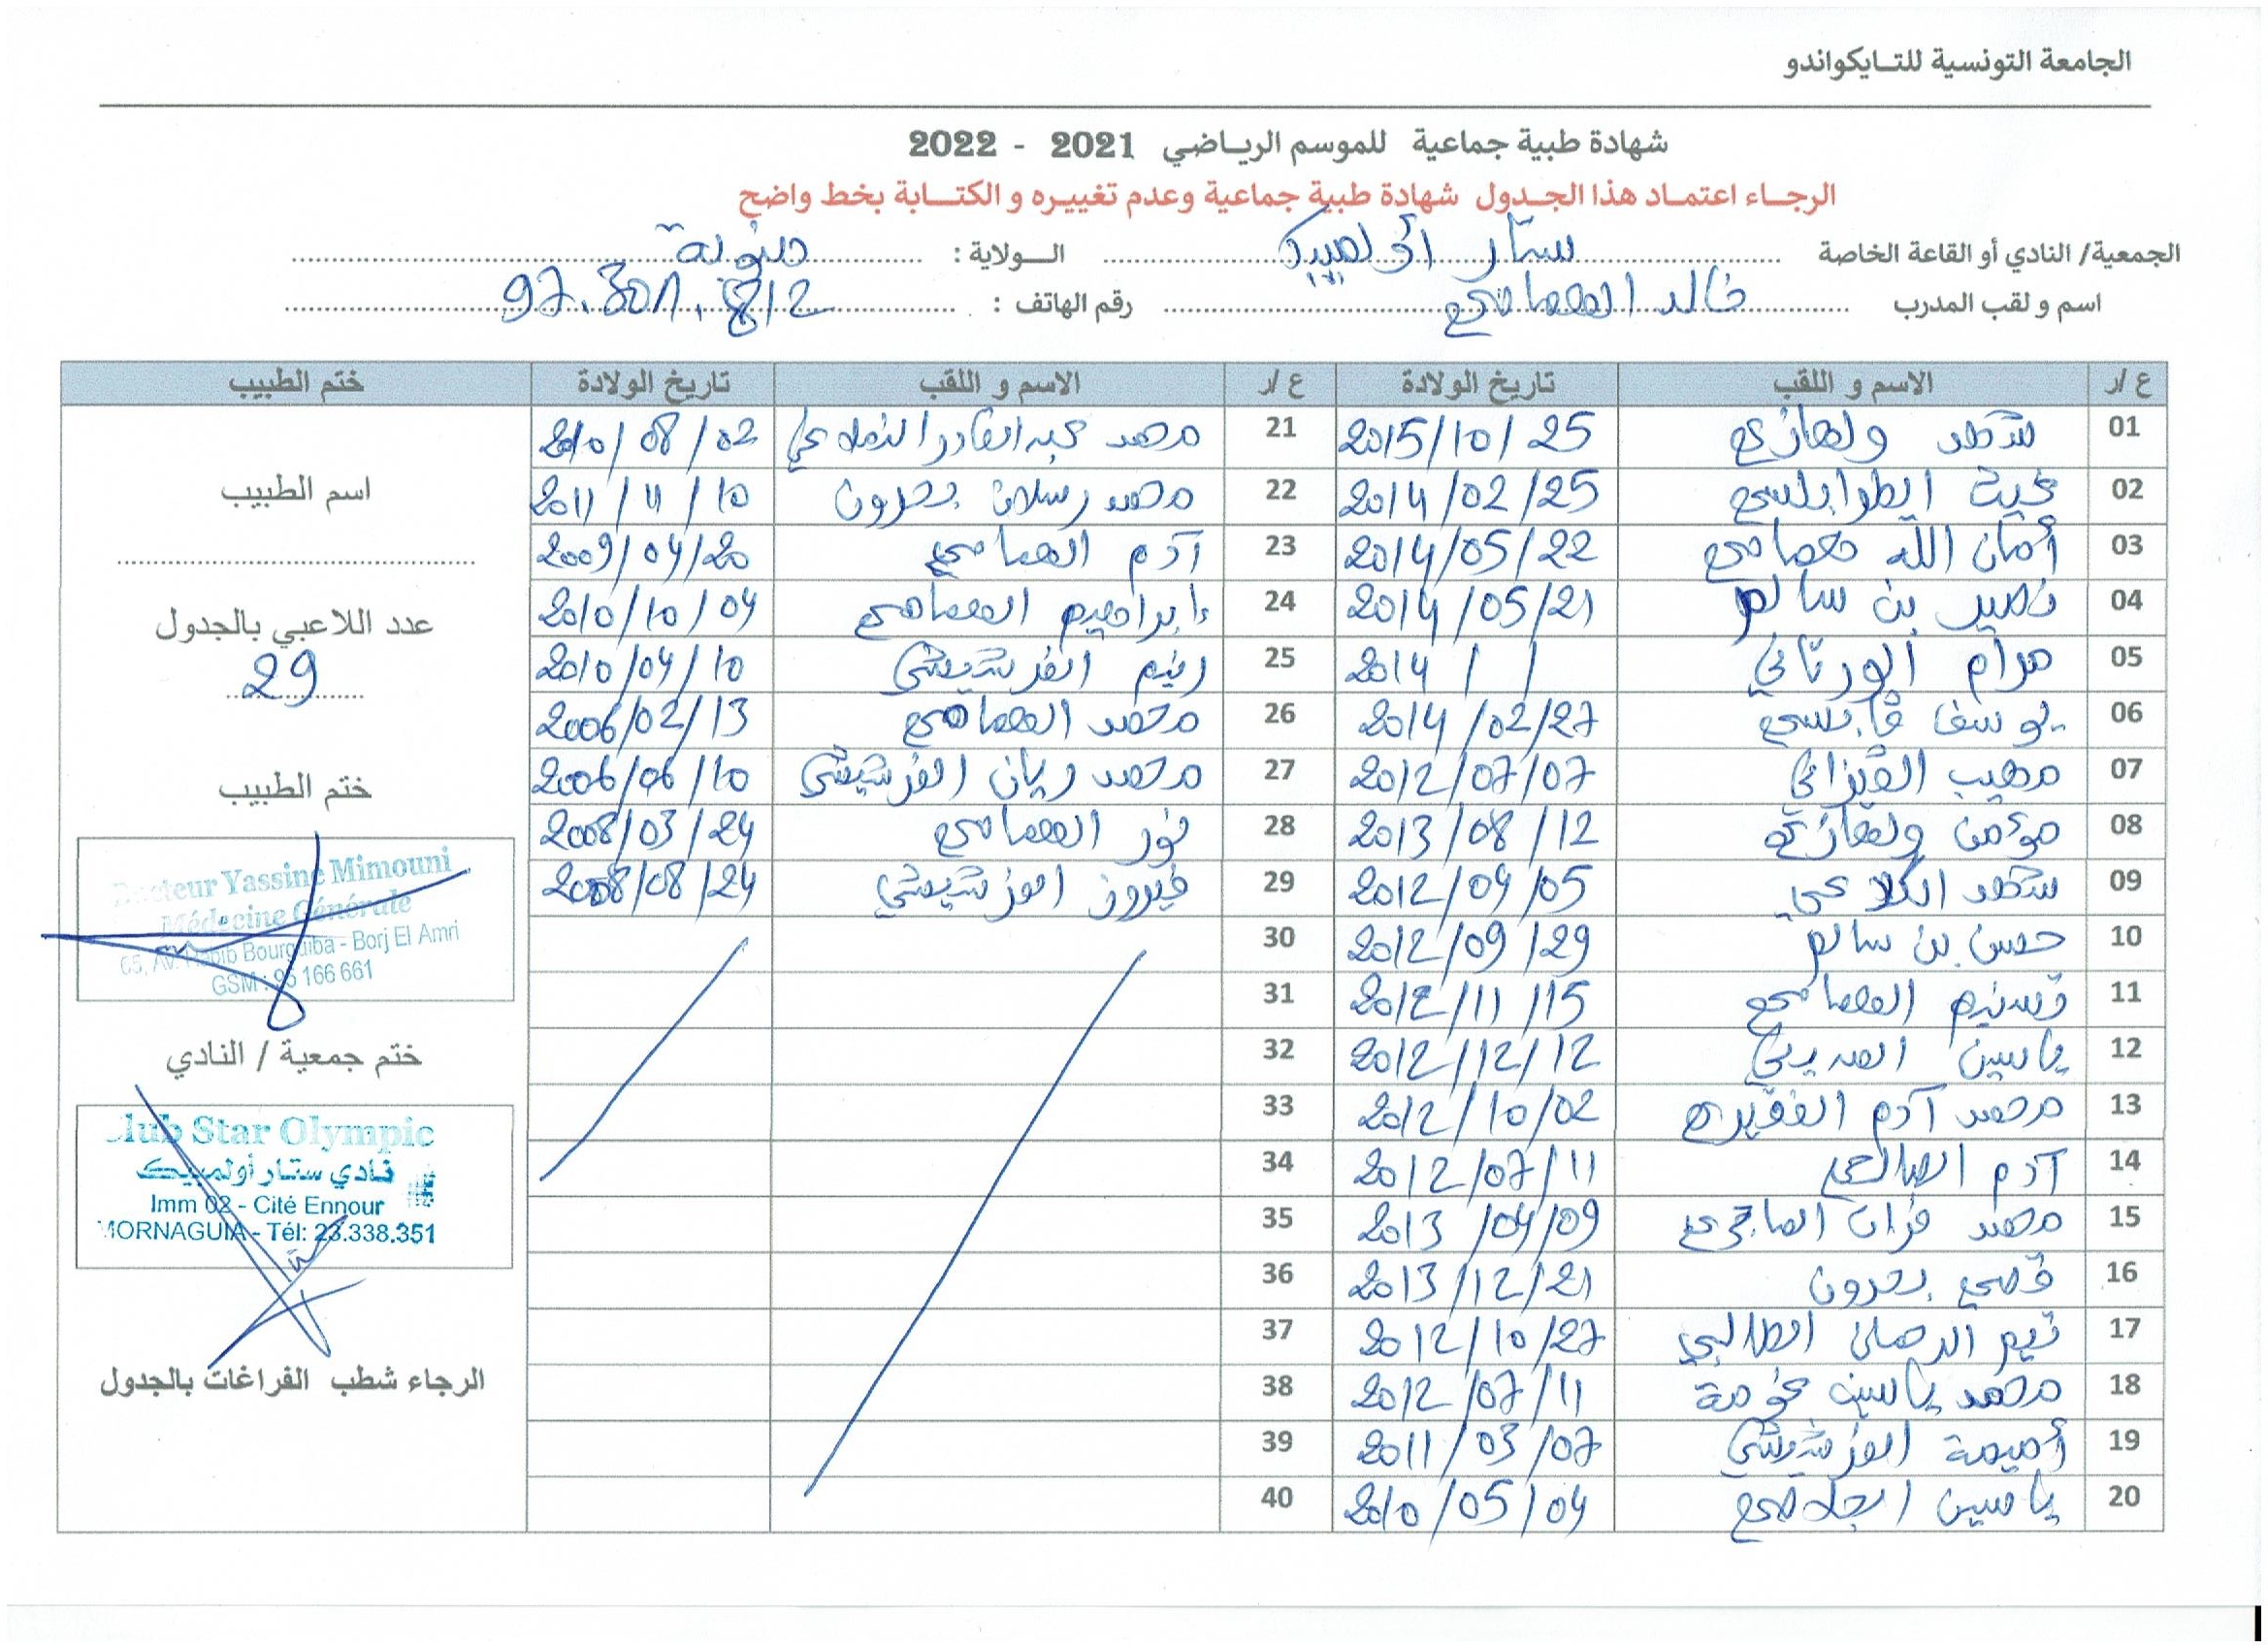 الجامعة التونسية للتايكواندو
شهادة طبية جماعية للموسم الرياضي 2021 - 2022
الرجاء اعتماد هذا الجدول شهادة طبية جماعية وعدم تغييره و الكتابة بخط واضح
الجمعية/ النادي أو القاعة الخاصة ستار أولمبيك الولاية : منوبة
اسم و لقب المدرب خالد العصامي رقم الهاتف : 97.301.812
ع/ر الاسم و اللقب تاريخ الولادة ع/ر الاسم و اللقب تاريخ الولادة ختم الطبيب
01 2015/10/25 21 محمد عبد القادر 2010/08/02
02 غيث الطرابلسي 2014/02/25 22 محمد رسلان بحرون 2011/11/10
03 أمان الله عصامي 2014/05/22 23 آدم العصامي 2009/04/20
04 نصير بن سالم 2014/05/21 24 ابراهيم العصامي 2010/10/04
05 مرام الورتاني 2014 / / 25 رنيم الغرشيشي 2010/04/10
06 يوسف قابسي 2014/02/27 26 محمد العصامي 2006/02/13
07 مهيب القيزاني 2012/07/07 27 محمد ريان الغرشيشي 2006/06/10
08 مؤمن 2013/08/12 28 نور العصامي 2008/03/24
09 2012/04/05 29 فيروز الغرشيشي 2008/08/24
10 حسن بن سالم 2012/09/29 30
11 تسنيم العصامي 2012/11/15 31
12 ياسين 2012/12/12 32
13 محمد آدم الفقيري 2012/10/02 33
14 آدم الصالحي 2012/07/11 34
15 محمد الماجري 2013/04/09 35
16 قصي بحرون 2013/12/21 36
17 تيم الرحمان الطالبي 2012/10/27 37
18 محمد ياسين 2012/07/11 38
19 أميمة الغرشيشي 2011/03/07 39
20 ياسين 2010/05/04 40
اسم الطبيب
عدد اللاعبي بالجدول
29
ختم الطبيب
Docteur Yassine Mimouni
Médecine Générale
65, Av. Habib Bourguiba - Borj El Amri
GSM : 96 166 661
ختم جمعية / النادي
Club Star Olympic
نادي ستار أولمبيك
Imm 02 - Cité Ennour
MORNAGUIA - Tél: 23.338.351
الرجاء شطب الفراغات بالجدول